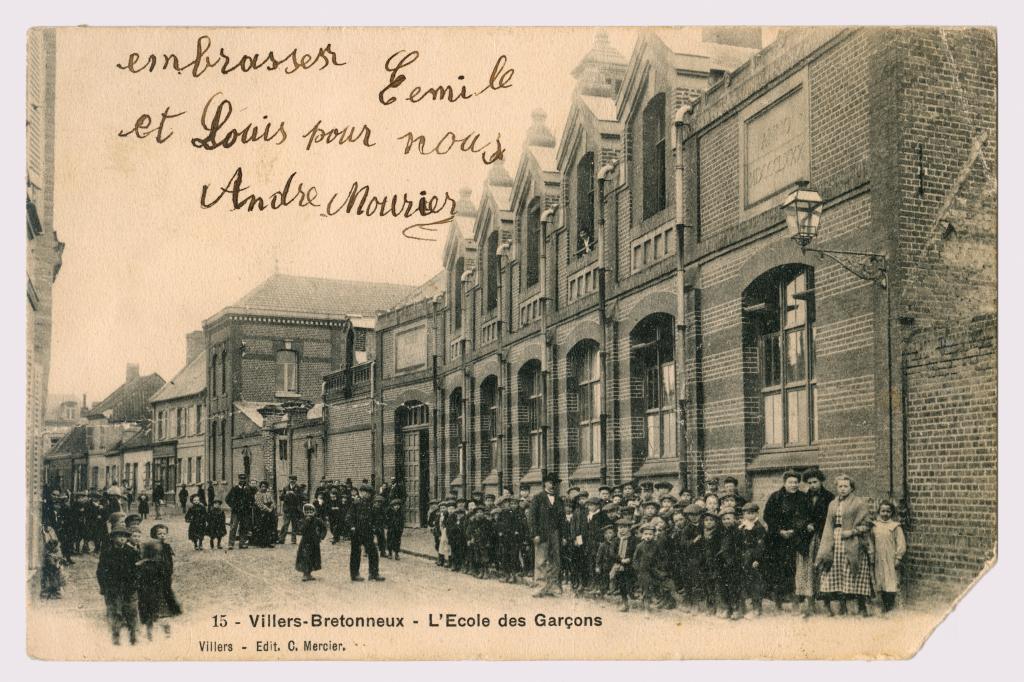 embrasser Eemile
et Louis pour nous
Andre Mourier
ANNO
15 - Villers-Bretonneux - L'Ecole des Garçons
Villers - Edit. C. Mercier.